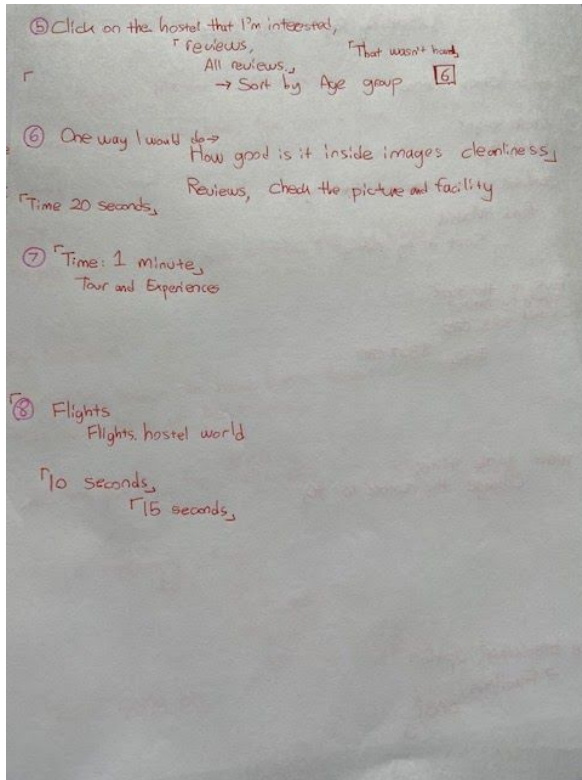 ⑤ Click on the hostel that I'm interested,
「reviews,
「That wasn't hard」
「
All reviews.」
→ Sort by Age group
6
⑥ One way I would do→
How good is it inside images cleanliness」
Reviews, check the picture and facility
「Time 20 seconds」
⑦ 「Time: 1 minute」
Tour and Experiences
「⑧ Flights
Flights. hostel world
「10 seconds」
「15 seconds」